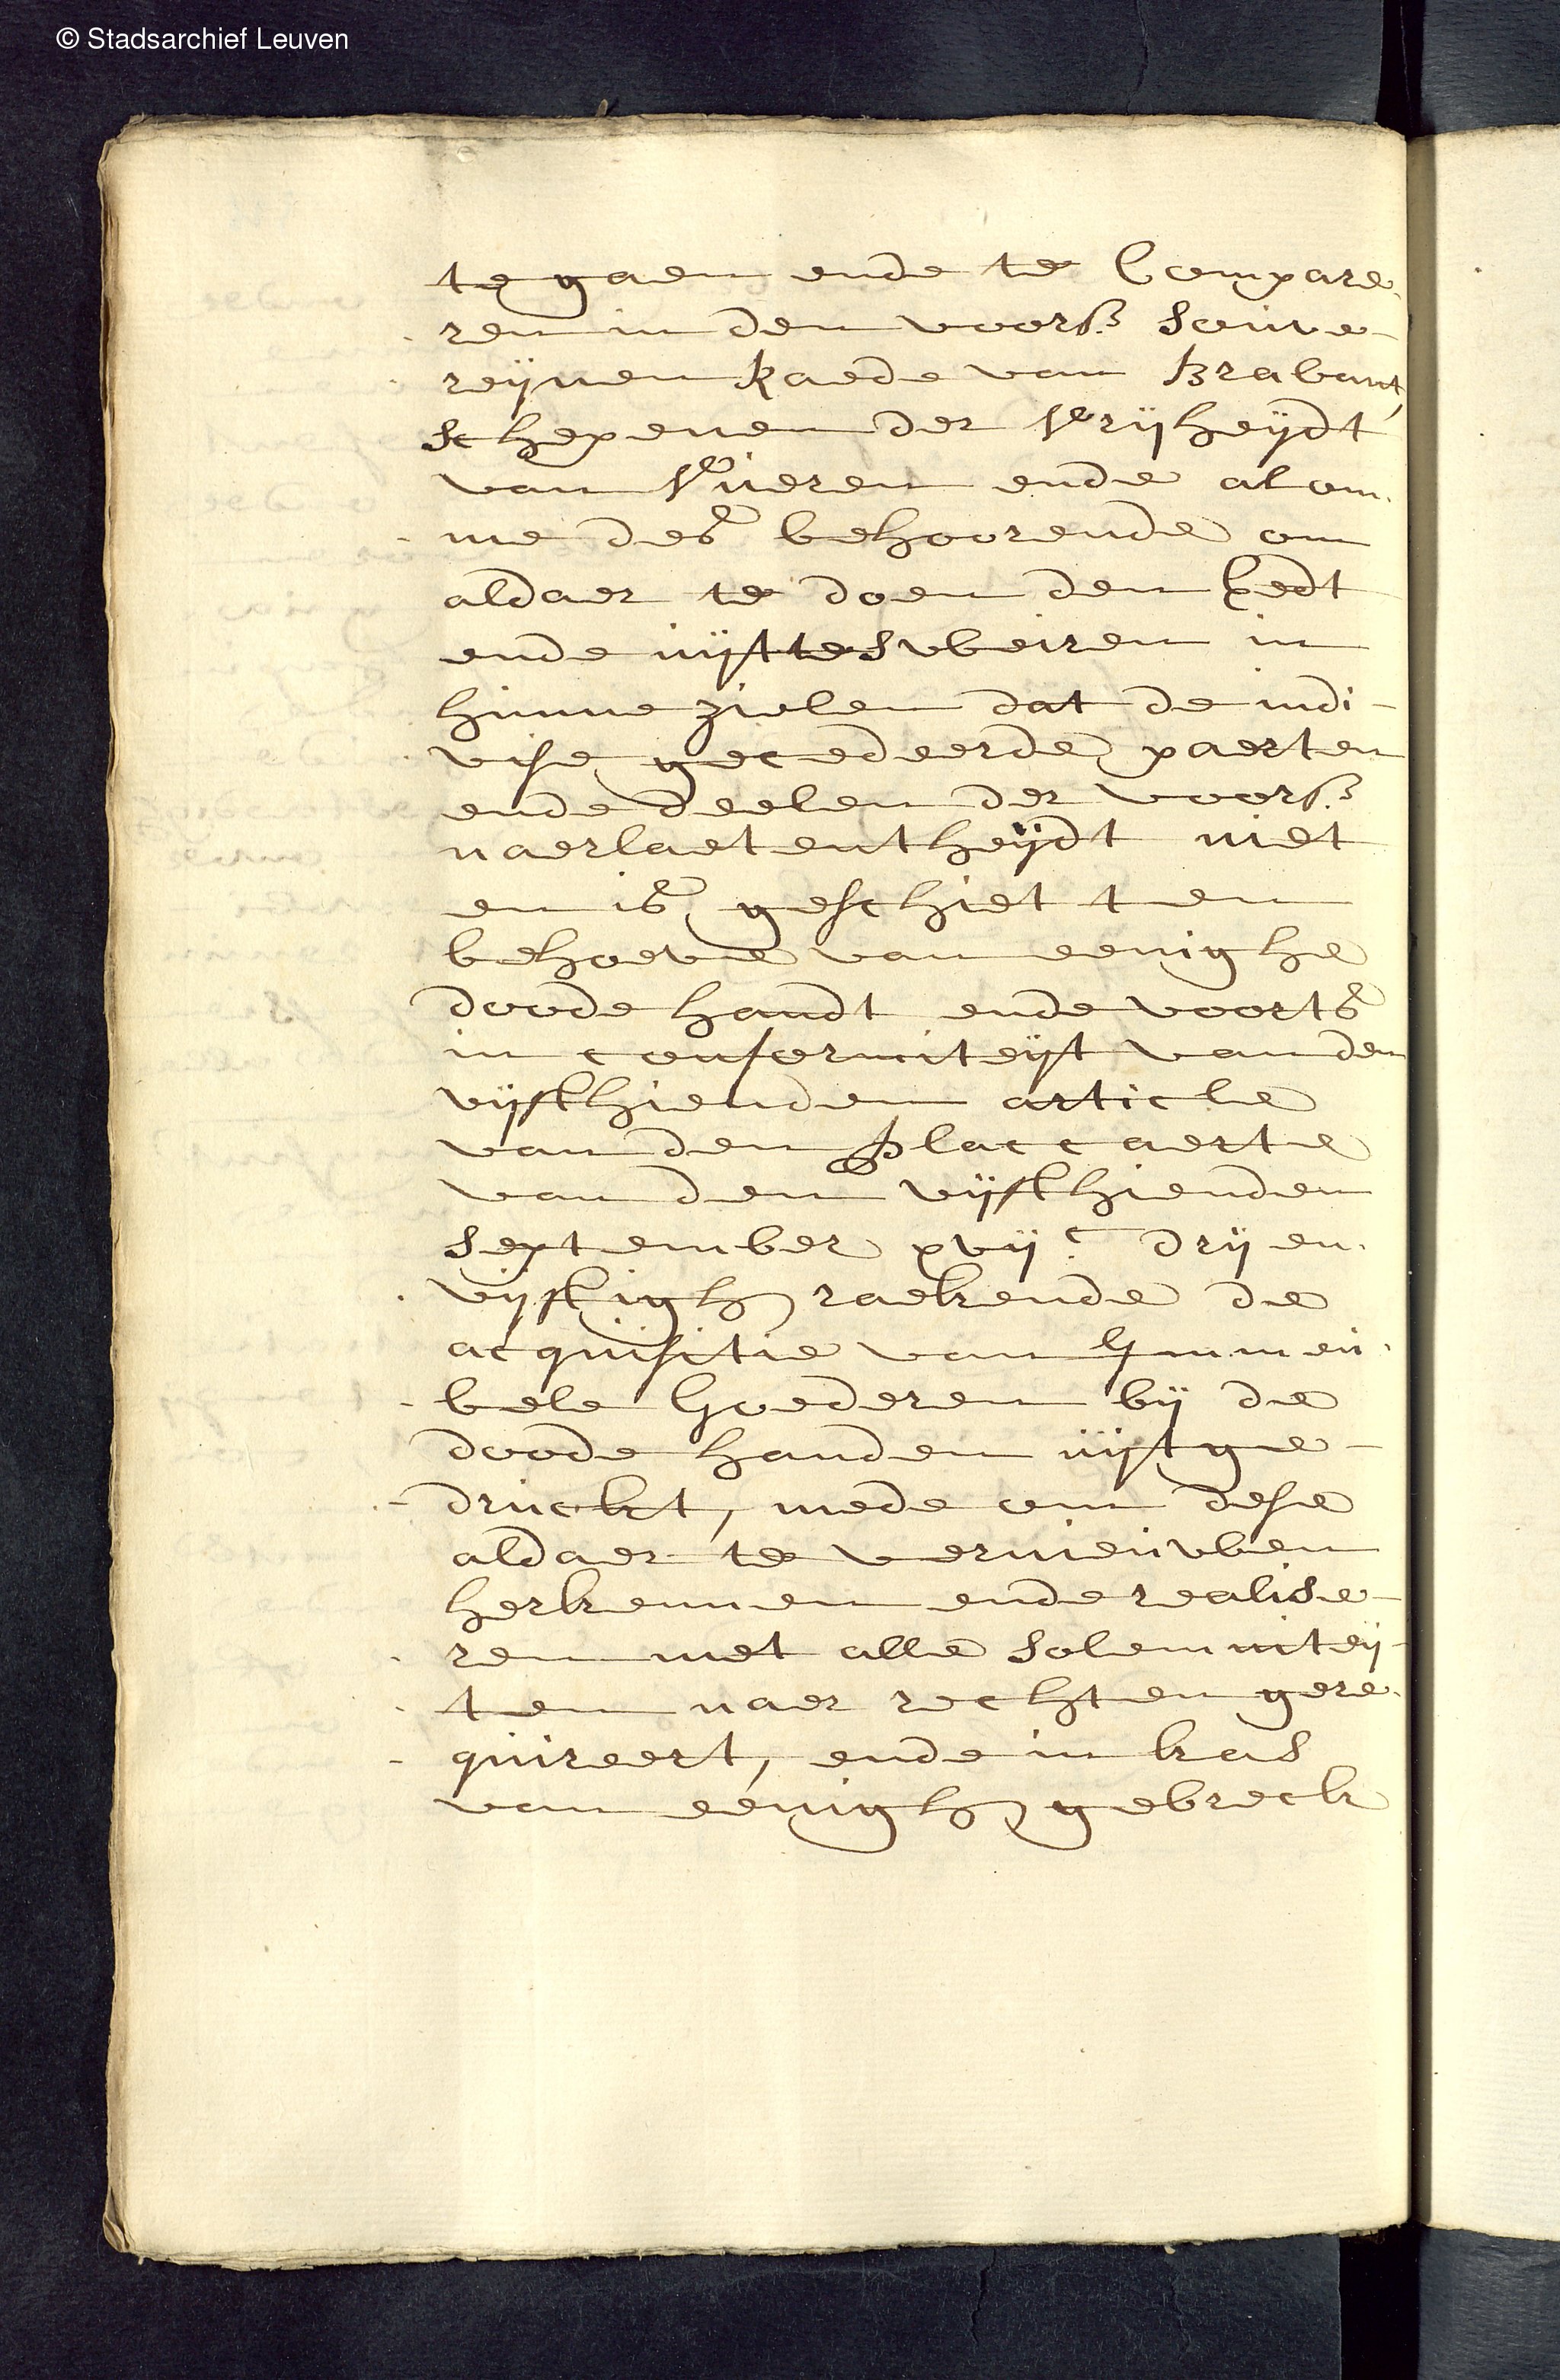 © Stadsarchief Leuven
te gaen ende te Compare-
ren in den voors. Souve-
reijnen Raede van Brabant,
schepenen der Vrijheijdt
van Vueren ende alom-
me des behoorende om
aldaer te doen den Eedt
ende uijt te sweiren in
hunne zielen dat de indi-
vise gecedeerde paerten
ende deelen der voors.
naerlaetentheijdt niet
en is geschiet ten
behoeve van eenighe
doode handt ende voorts
in conformiteijt van den
vijfthienden article
van den placcaerte
van den vijfthienden
september xvijc drij en-
vijftigh raekende de
acquisitie van Immeu-
bele Goederen bij de
doode handen uijtge-
druckt, mede om dese
aldaer te vernieuwen
herkennen ende realise-
ren met alle solemniteij-
ten naer rechten gere-
quireert, ende in kas
van eenigh gebreck